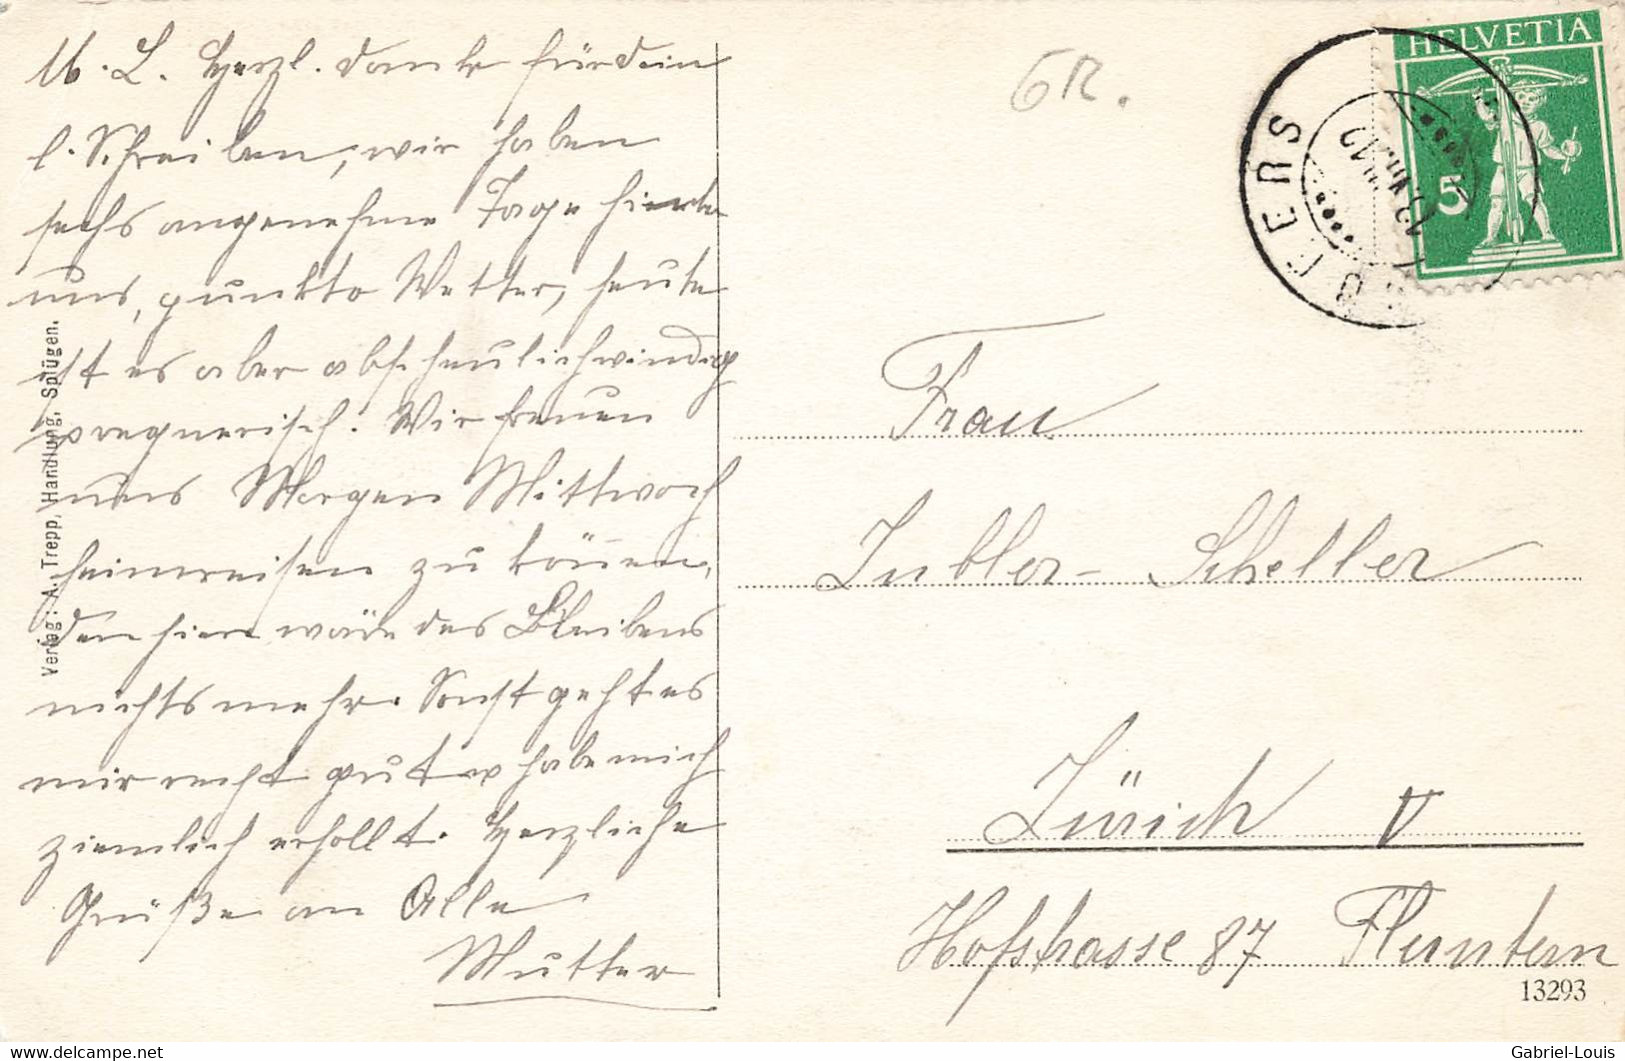 M. L. Herzl. Dank für dein
l. Schreiben, wir haben
sechs angenehme Tage hinter
uns, punkto Wetter, heute
ist es aber abscheulich windig
regnerisch. Wir freuen
uns Morgen Mittwoch
heimreisen zu können,
den hier wäre des Bleibens
nichts mehr. Sonst geht es
mir recht gut & habe mich
ziemlich erhollt. Herzliche
Grüße an Alle
Mutter
Verlag: A. Trepp, Handlung, Splügen.
6R.
HELVETIA
5
Frau
Scheller
Zürich V
Hofstrasse 87 Fluntern
13293
delcampe.net
Gabriel-Louis